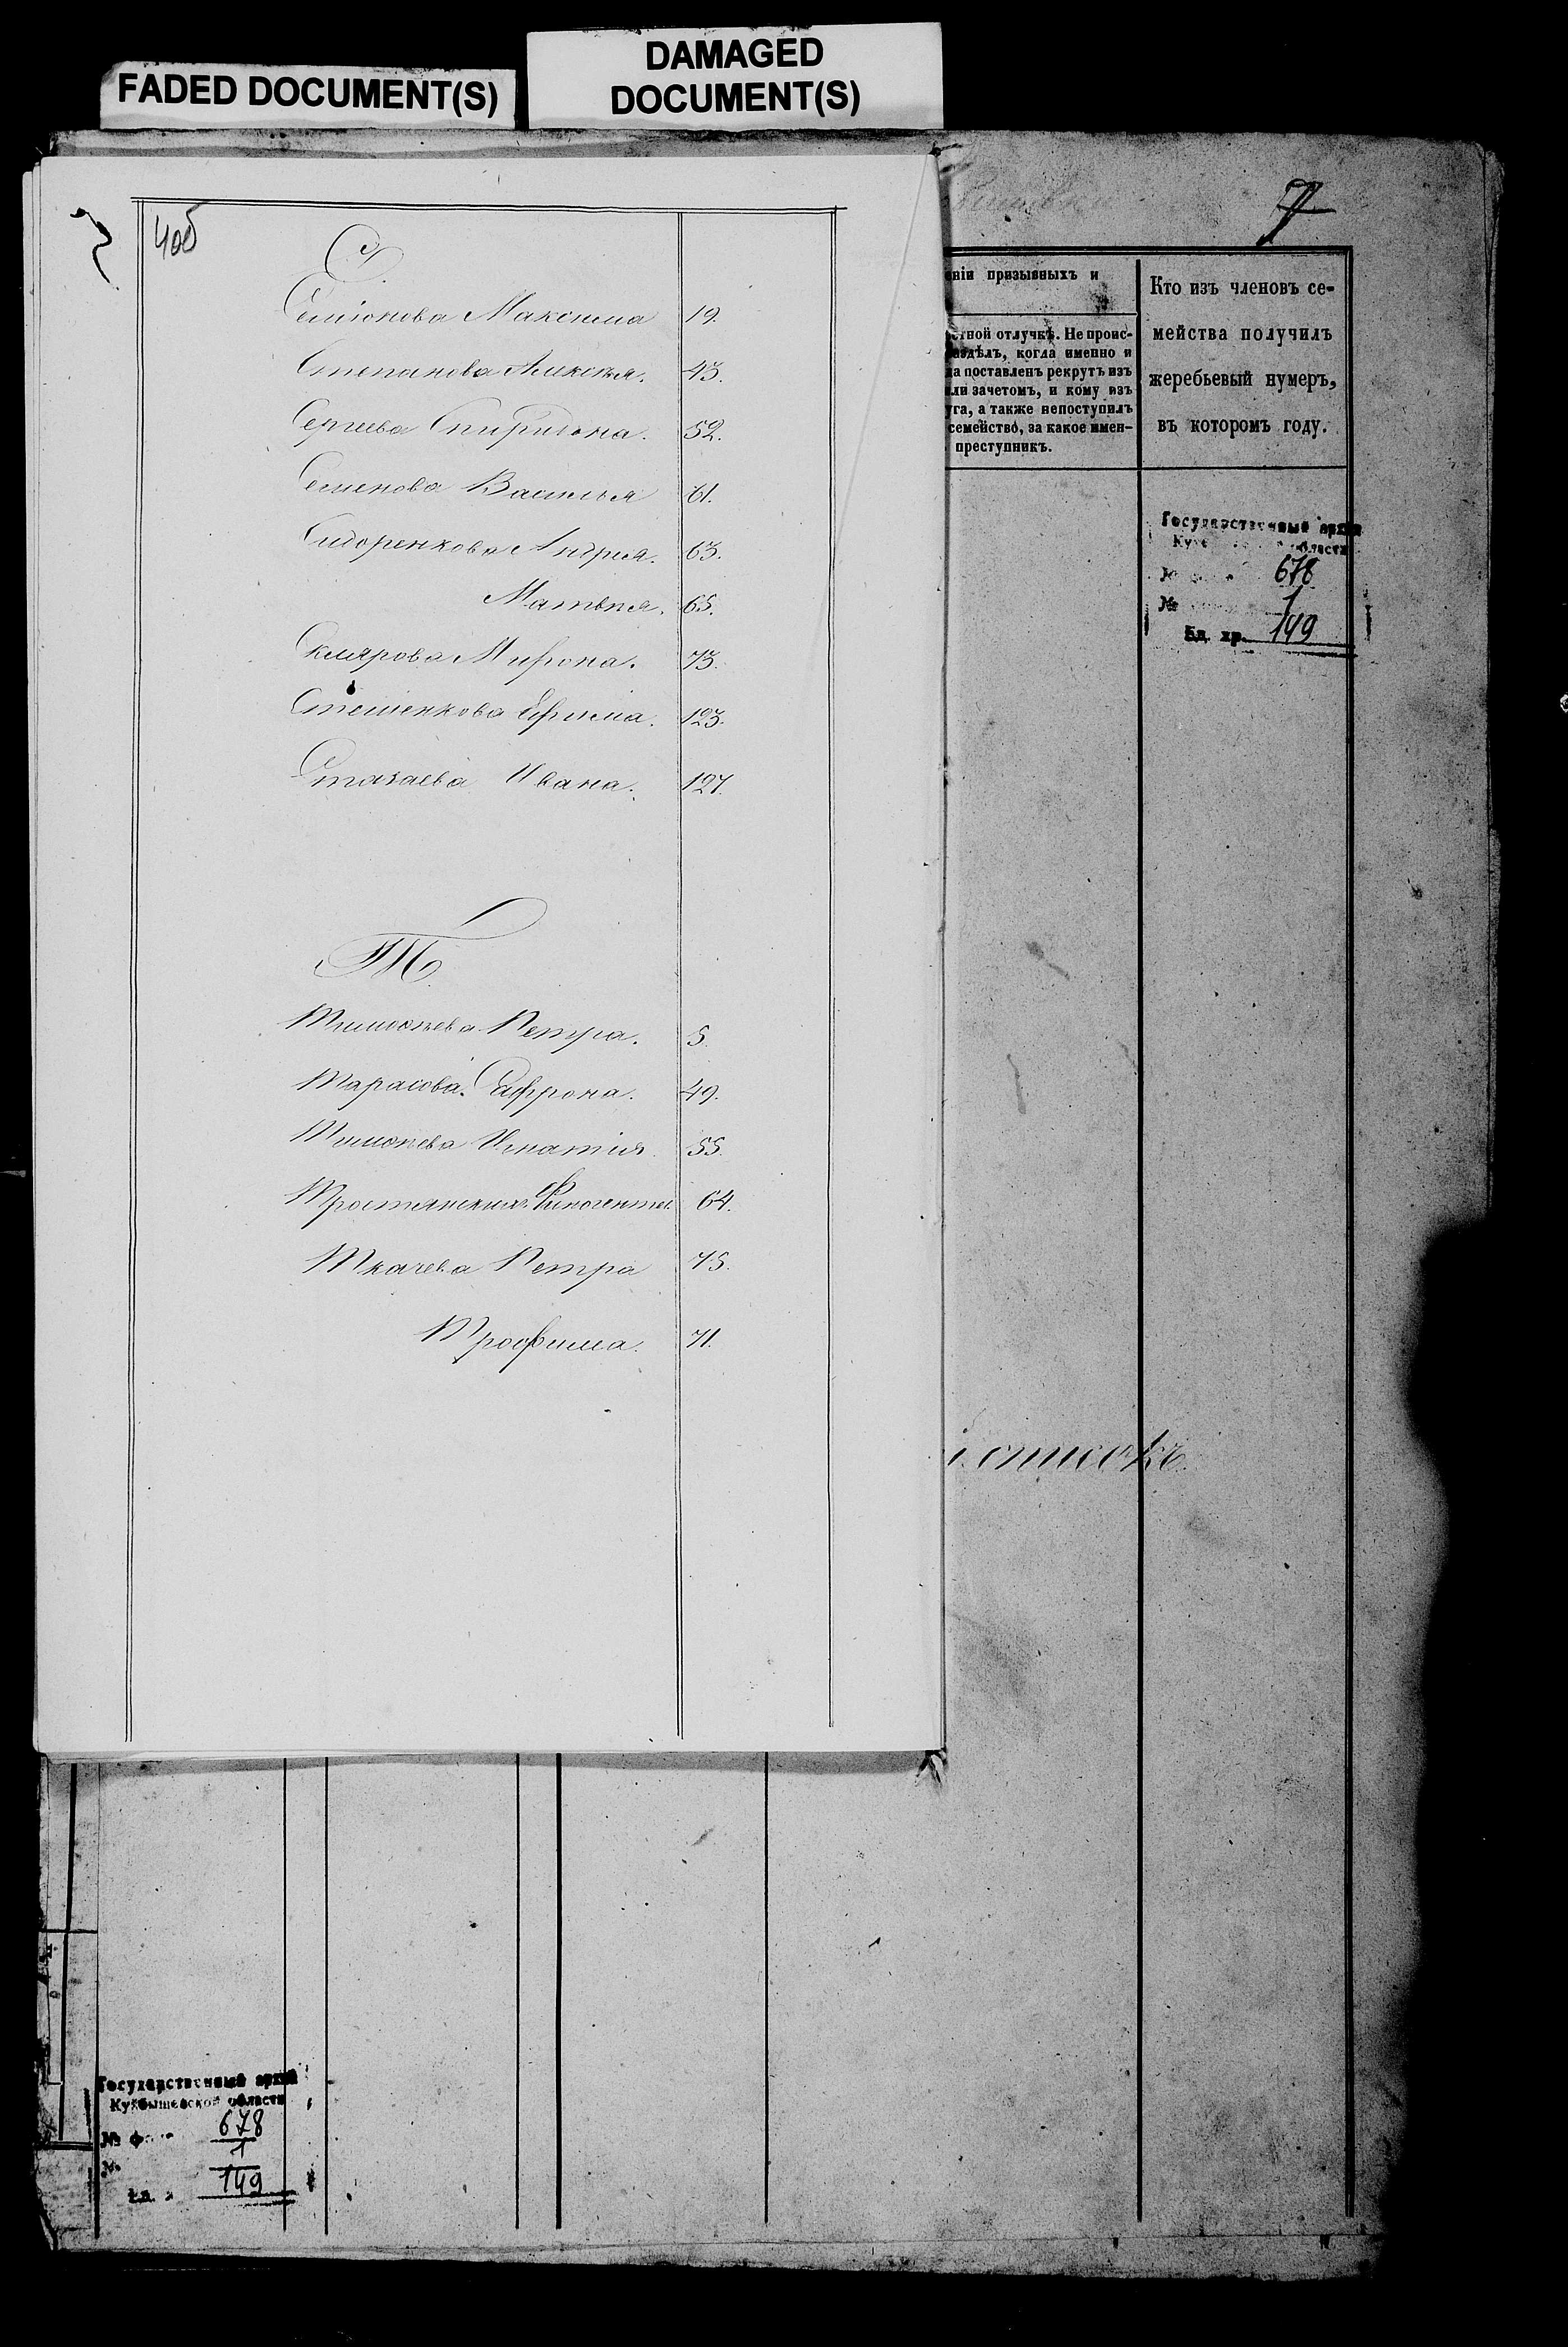 FADED DOCUMENT(S)
DAMAGED
DOCUMENT(S)
4об
С
Семіонова Максима 19.
Степанова Алексѣя. 43.
Сергѣева Спиридона. 52.
Семенова Василья 61.
Сидоренкова Андрея. 63.
Матвѣя. 65.
Склярова Мирона. 73.
Стешенкова Ефима. 123.
Стагаева Ивана. 127.
Т.
Тимофѣева Петра. 5.
Тарасова Сафрона. 49.
Тимофѣева Игнатія 55.
Тростянскихъ Финогентея 64.
Ткачева Петра 75.
Трофима. 71.
7
ніи призывныхъ и
стной отлучкѣ. Не проис-
аздѣлъ, когда именно и
да поставленъ рекрутъ изъ
или зачетомъ, и кому изъ
уга, а также непоступилъ
семейство, за какое имен-
преступникъ.
Кто изъ членовъ се-
мейства получилъ
жеребьевый нумеръ,
въ которомъ году.
Государственный архив
области
678
№ 1
Ед. хр. 149
списокъ.
Государственный архив
Куйбышевской области
№ 678
№ 1
Ед. 149